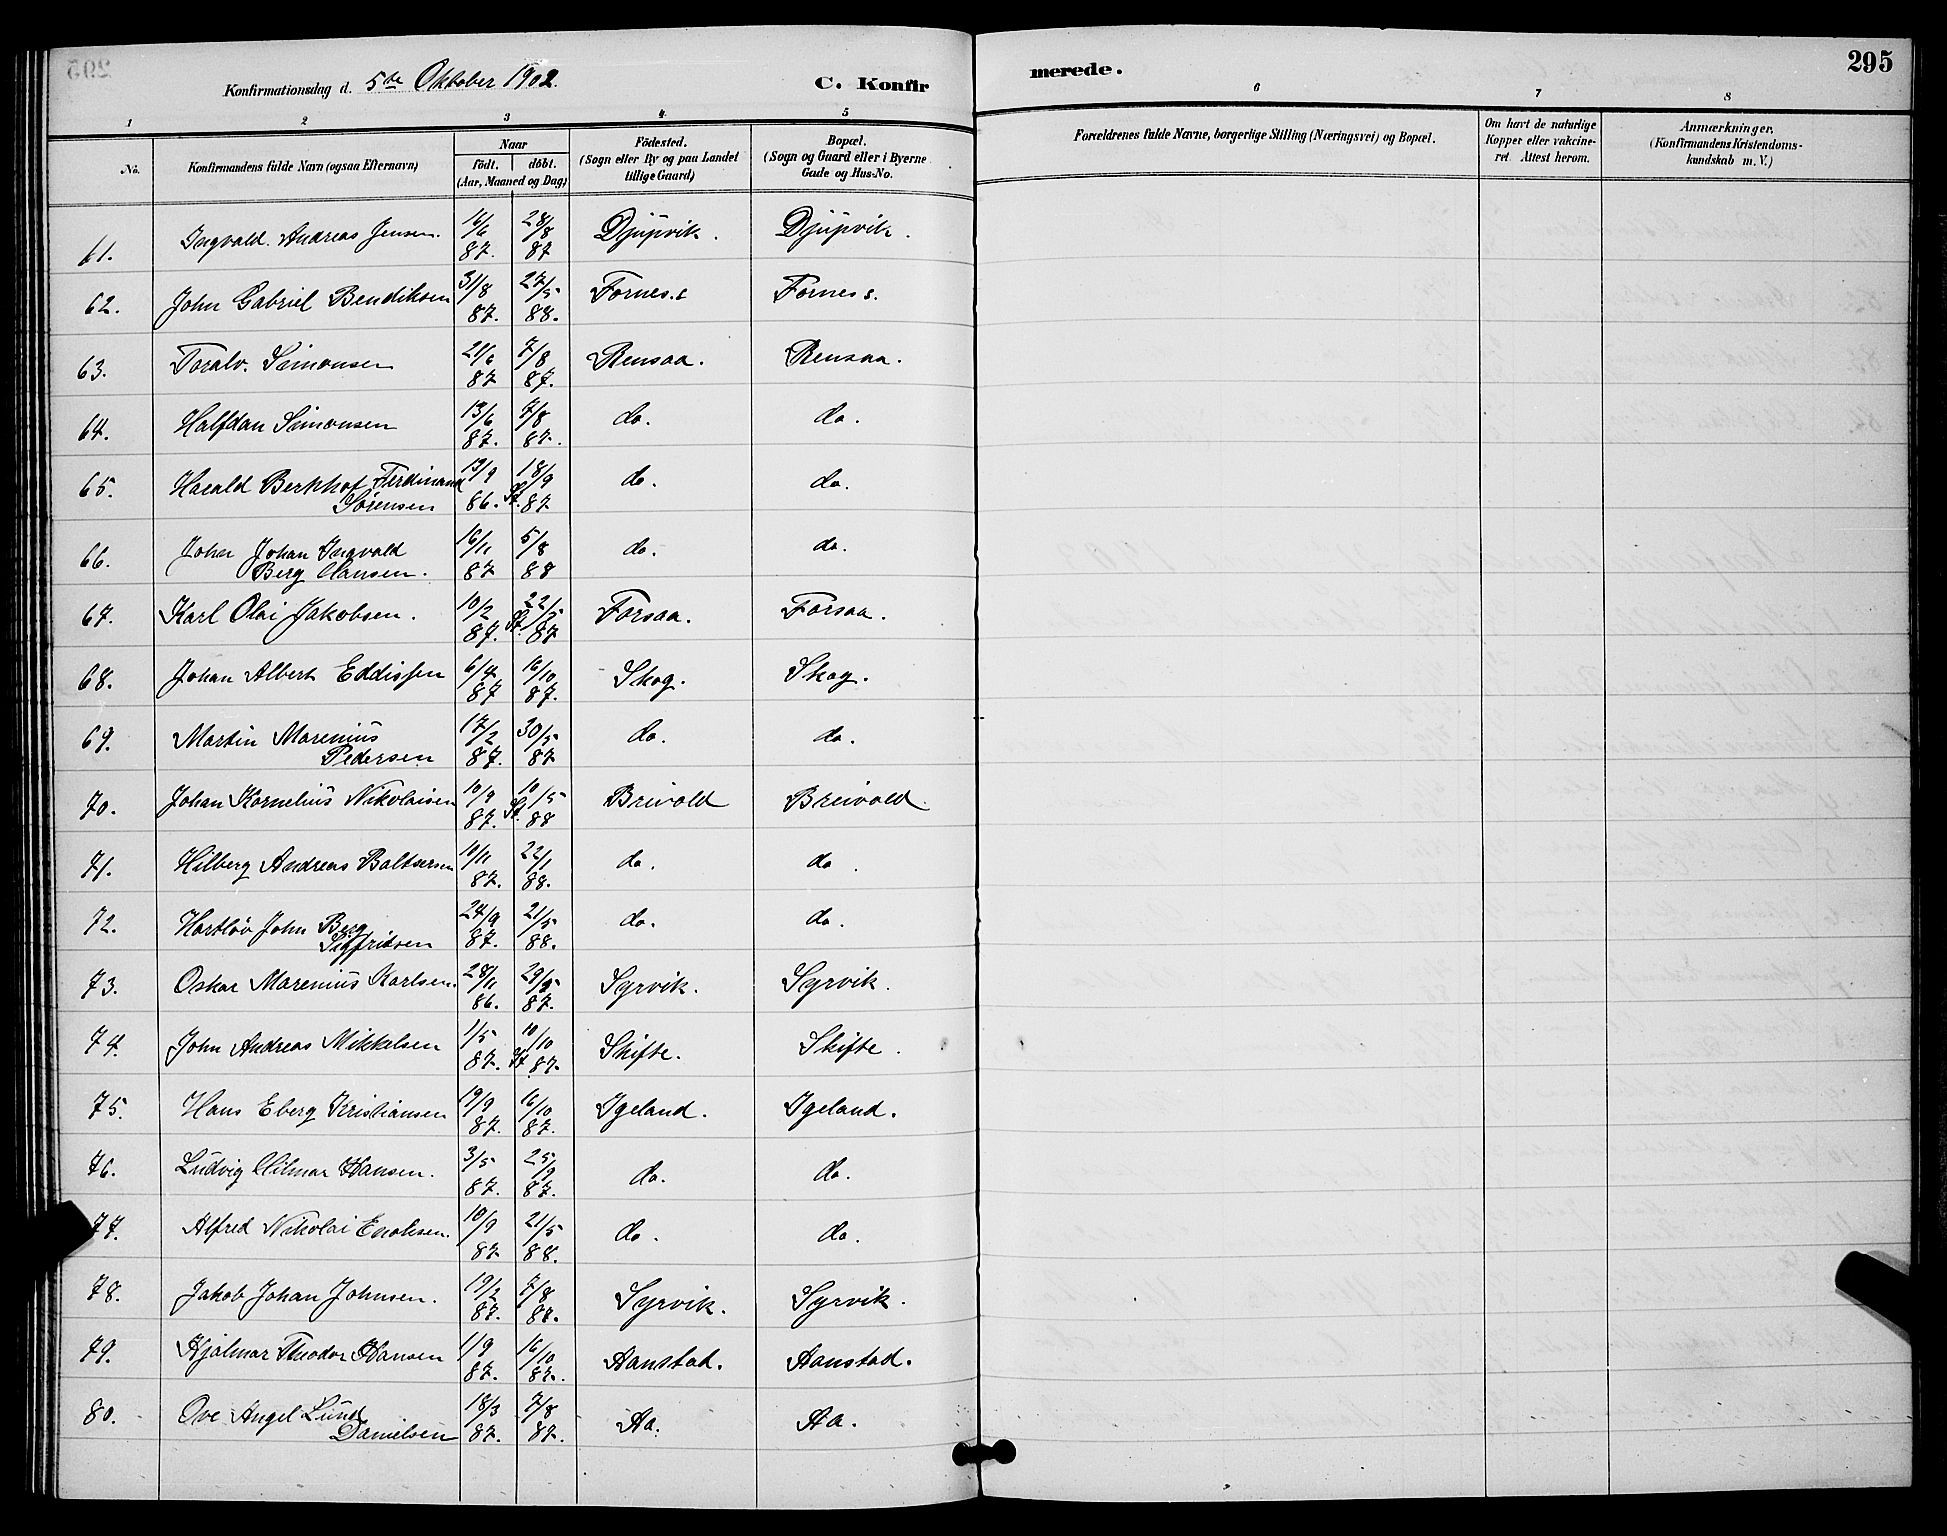 Konfirmationsdag d. 5te Oktober 1902.
C. Konfir
merede.
295
1 2 3 4 5 6 7 8
No.
Konfirmandens fulde Navn (ogsaa Efternavn)
Naar
födt. döbt.
(Aar, Maaned og Dag)
Födested.
(Sogn eller By og paa Landet
tillige Gaard)
Bopæl.
(Sogn og Gaard eller i Byerne
Gade og Hus-No.
Forældrenes fulde Navne, borgerlige Stilling (Næringsvei) og Bopæl.
Om havt de naturlige
Kopper eller vakcine-
ret. Attest herom.
Anmærkninger,
(Konfirmandens Kristendoms-
kundskab m. V.)
61. Ingvald. Andreas Jensen. 16/6 87. 28/8 87 Djupvik. Djupvik.
62. John Gabriel Bendiksen 31/8 87. 27/5 88. Fornes.s Forness.
63. Toralv. Simonsen 21/6 87 7/8 87. Rensaa. Rensaa.
64. Halfdan Simonsen 13/6 87. 7/8 87. do. do.
65. Harald Berkhof Ferdinand
Sørensen 13/9 86. St. 18/9 87 do. do.
66. John Johan Ingvald
Berg Hansen. 16/11 87 5/8 88 do. do.
67. Karl Olai Jakobsen. 10/2 87. St. 22/5 87 Forsaa. Forsaa.
68. Johan Albert Eddissen 6/4 87 16/10 87. Skog. Skog.
69. Martin Marenius
Pedersen 17/2 87. 30/5 87 do. do.
70. Johan Kornelius Nikolaisen 10/9 87. St. 10/5 88 Breivold Breivold.
71. Hilberg Andreas Baltsersen 10/11 87. 22/1 88. do. do.
72. Hartløv John Berg
Sigfritsen 24/9 87. 21/5 88. do. do.
73. Oskar Marenius Karlsen. 28/11 86. 29/5 87. Syrvik. Syrvik.
74. John Andreas Mikkelsen 1/5 87. St. 10/10 87. Skifte. Skifte.
75. Hans Eberg Kristiansen 19/9 87. 16/10 87. Igeland. Igeland.
76. Ludvig Hilmar Hansen. 3/5 87. 25/9 87. do. do.
77. Alfred Nikolai Enoksen. 10/9 87. 21/5 88. do. do.
78. Jakob Johan Johnsen. 19/2 87. 7/8 87. Syrvik. Syrvik.
79. Hjalmar Theodor Hansen 1/9 87. 16/10 87. Aanstad. Aanstad.
80. Ove Angel Lund
Danielsen 18/3 87. 7/8 87. Aa. Aa.